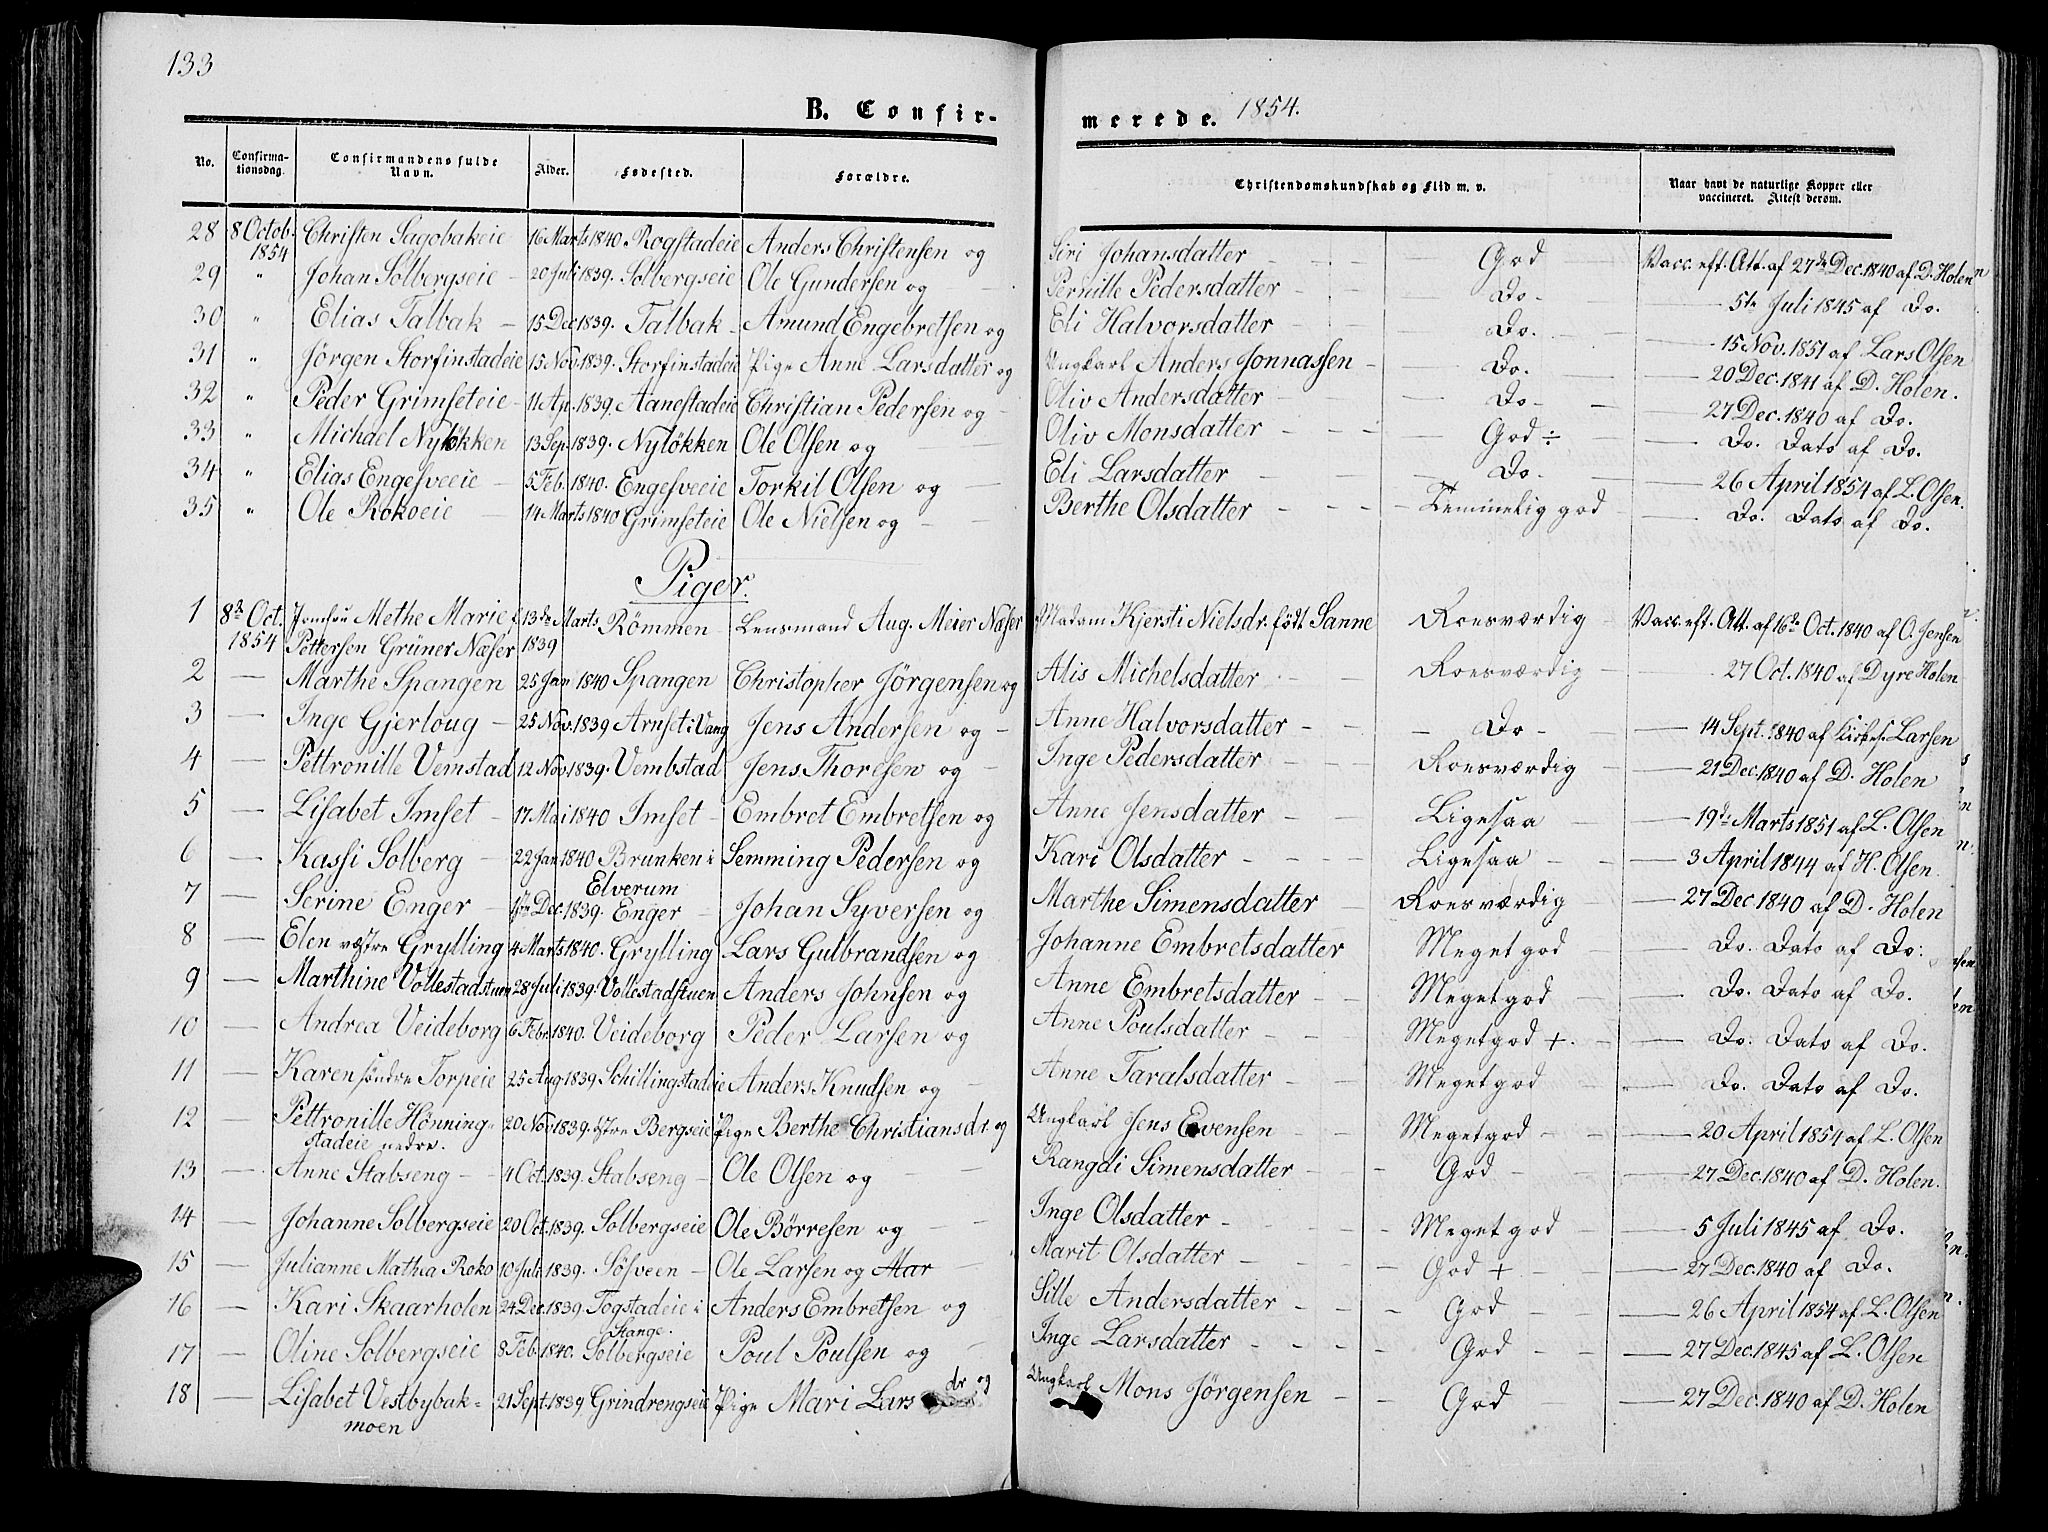 133
B. Confirmerede. 1854.
No. Confirmationsdag. Confirmandens fulde Navn. Alder. Fødested. Forældre. Christendomskundskab og Flid m. v. Naar havt de naturlige Kopper eller vaccineret. Attest derom.
28 8 Octob. 1854 Christen Sagobakeie 16 Marts 1840 Rogstadeie Anders Christensen og Siri Johansdatter - God - Vacc. eft. Att. af 27de Dec. 1840 af D. Holen
29 " Johan Solbergseie - 20 Juli 1839. Solbergseie Ole Gundersen og - Pernille Pedersdatter - Do - 5te Juli 1845 af Do.
30 " Elias Talbak - 15 Dec 1839. Talbak - Amund Engebretsen og Eli Halvorsdatter - Do. - 15 Nov. 1851 af Lars Olsen
31 " Jørgen Storfinstadeie 15 Nov. 1839. Storfinstadeie Pige Anne Larsdatter og Ungkarl Anders Jonnassen - Do. - 20 Dec. 1841 af D. Holen.
32 " Peder Grimseteie - 11 Ap. 1839. Aanestadeie Christian Pedersen og - Oliv Andersdatter - Do - 27 Dec. 1840 af Do.
33 " Michael Nyløkken 13 Sep. 1839. Nyløkken Ole Olsen og Oliv Monsdatter - God ÷ - Do. Dato af Do.
34 " Elias Engesveeie - 5 Feb. 1840. Engesveeie Torkil Olsen og - Eli Larsdatter - Do. - 26 April 1854 af L. Olsen.
35 " Ole Rokoeie - 14 Marts 1840 Grimseteie Ole Nielsen og - Berthe Olsdatter - Temmelig god - Do. Dato af Do.
Piger.
1 8de Oct. 1854 Jomfru Methe Marie Pettersen Grüner Næser 13de Marts 1839 Rømmen - Lensmand Aug. Meier Næser Madam Kjersti Nielsdr. født Sanne Roesværdig - Vacc. eft. Att. af 16de Oct. 1840 af O. Jensen
2 - Marthe Spangen 25 Jan 1840 Spangen Christopher Jörgensen og Alis Michelsdatter - Roesværdig - 27 Oct. 1840 af Dyre Holen
3 - Inge Gjerloug - 25 Nov. 1839 Arnset i Vang Jens Andersen og - Anne Halvorsdatter - Do - 14 Sept. 1840 af Kirkes. Larsen
4 - Pettronille Vemstad 12 Nov. 1839. Vembstad Jens Thoresen og - Inge Pedersdatter - Roesværdig - 21 Dec. 1840 af D. Holen
5 - Lisabet Imset - 17 Mai 1840 Imset - Embret Embretsen og Anne Jensdatter - Ligesaa - 19de Marts 1851 af L. Olsen
6 - Kassi Solberg - 22 Jan 1840 Brunken i Elverum Semming Pedersen og Kari Olsdatter - Ligesaa - 3 April 1844 af H. Olsen
7 - Serine Enger - Dec. 1839. Enger - Johan Syversen og Marthe Simensdatter - Roesværdig - 27 Dec. 1840 af D. Holen
8 - Elen vestre Grylling 4 Marts 1840. Grylling Lars Gulbrandsen og Johanne Embretsdatter Meget god - Do. Dato af Do.
9 - Marthine Vollestadstuen 28 Juli 1839. Vollestadstuen Anders Johnsen og Anne Embretsdatter - Meget god - Do. Dato af Do.
10 - Andrea Veideborg 6 Febr. 1840. Veideborg Peder Larsen og Anne Poulsdatter - Meget god + - Do. Dato af Do.
11 - Karen söndre Torpeie 25 Aug 1839 Schillingstadeie Anders Knudsen og - Anne Taralsdatter - Meget god - Do. Dato af Do.
12 - Pettronille Hönningstadeie nedre. 20 Nov 1839. østre Bergseie Pige Berthe Christiansdr. og Ungkarl Jens Evensen - Meget god - 20 April 1854 af L. Olsen
13 - Anne Stabseng - 4 Oct. 1839. Stabseng - Ole Olsen og - Rangdi Simensdatter - God - 27 Dec. 1840 af D. Holen.
14 - Johanne Solbergseie 20 Oct. 1839. Solbergseie Ole Börresen og - Inge Olsdatter - Meget god - 5 Juli 1845 af Do.
15 - Julianne Mathea Roko 10 Juli 1839. Sösveen - Ole Larsen og Mar Marit Olsdatter - God + - 27 Dec. 1840 af Do.
16 - Kari Skaarholen 24 Dec. 1839. Togstadeie i Stange. Anders Embretsen og Sille Andersdatter - God - 26 April 1854 af L. Olsen
17 - Oline Solbergseie 8 Feb. 1840. Solbergseie Poul Poulsen og - Inge Larsdatter - God - 27 Dec. 1845 af L. Olsen
18 - Lisabet Vestbybakmoen 21 Sept. 1839 Grindrengseie Pige Mari Lars dr og Ungkarl Mons Jörgensen - God - 27 Dec. 1840 af D. Holen